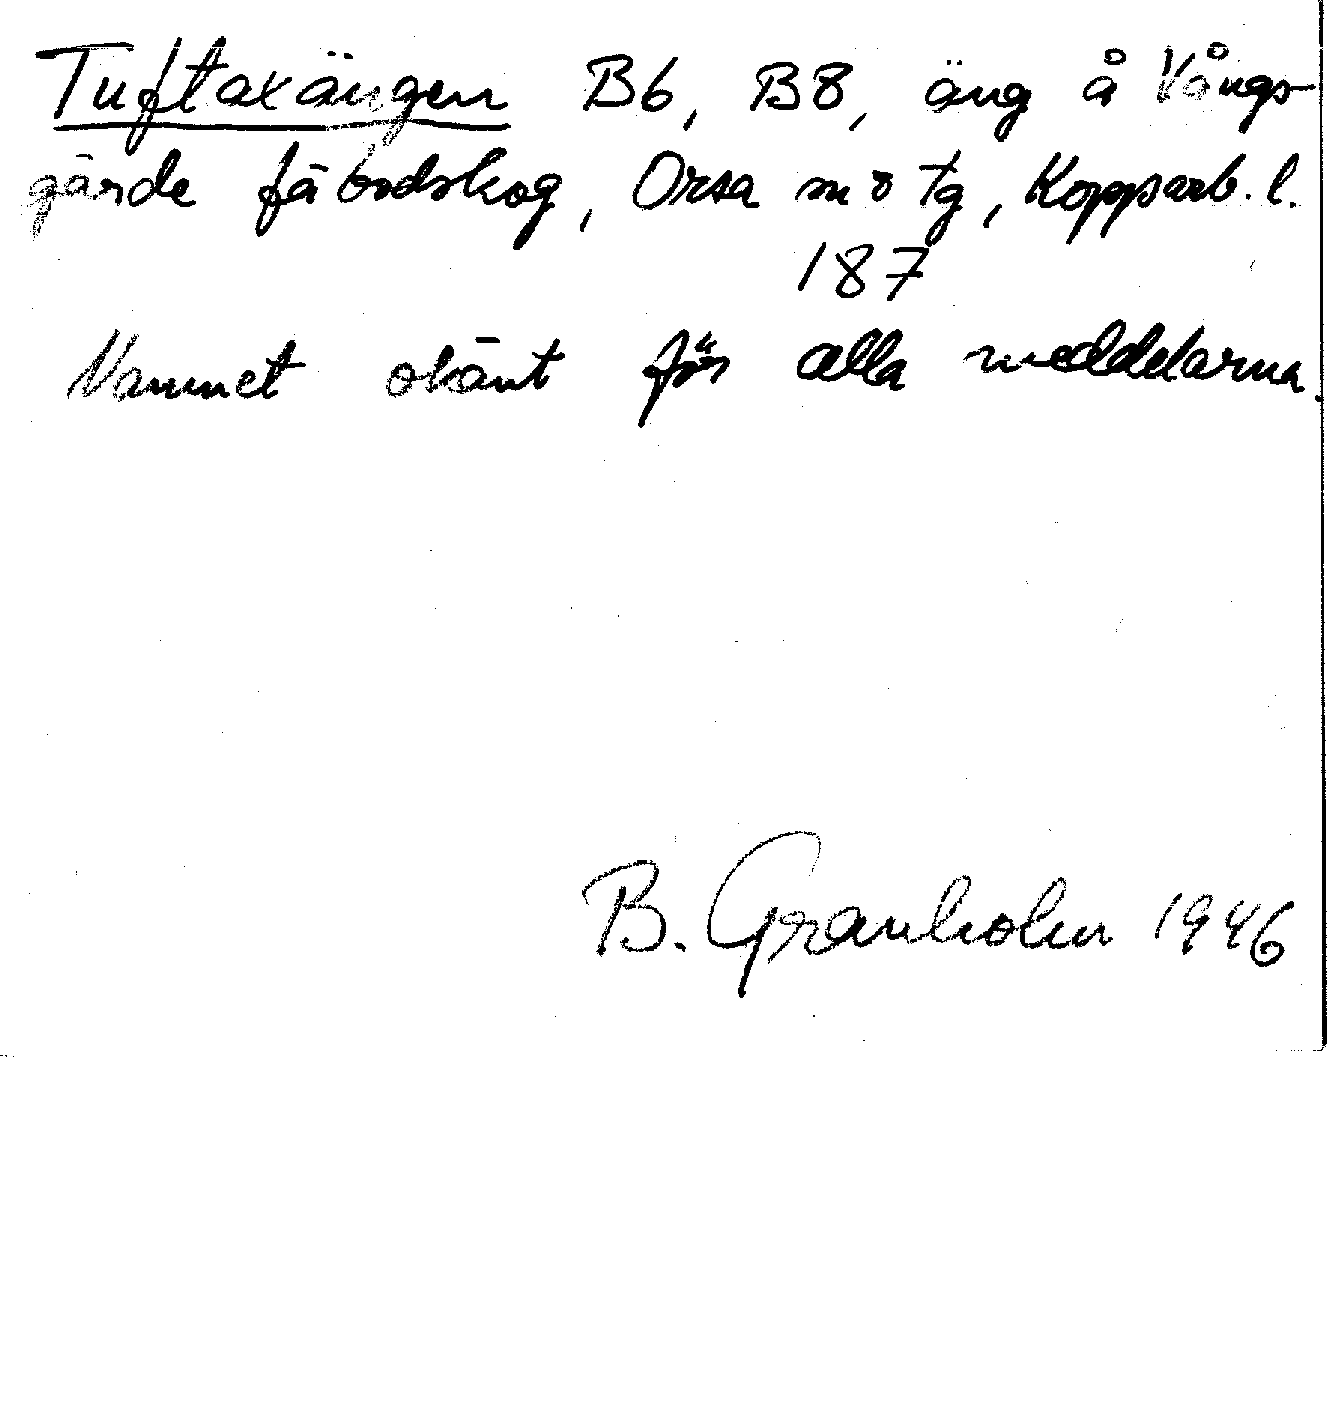 Tuftaxängen B6, B8, äng å Vångs-
gärde fäbodskog, Orsa sn o tg, Kopparb. l.
187
Namnet okänt för alla meddelarna.
B. Granholm 1946